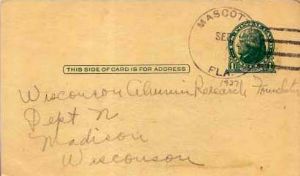 MASCOT
SEP
FLA
1937
THIS SIDE OF CARD IS FOR ADDRESS
Wisconsin Alumni Research Foundation
Dept N
Madison
Wisconson